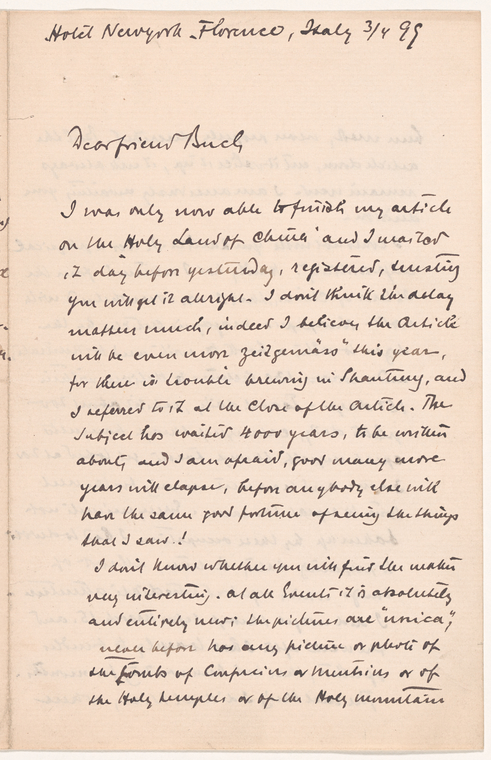 Hotel Newyork Florence, Italy 3/4 99
Dear friend Buel
I was only now able to finish my article
on the Holy Land of China" and I mailed
it day before yesterday, registered, trusting
you will get it allright. I don't think the delay
matters much, indeed I believe, the article
will be even more zeitgemäss" this year,
for there is trouble brewing in Shantung, and
I referred to it at the close of the article. The
Subject has waited 4000 years, to be written
about, and I am afraid, good many more
years will elapse, before anybody else will
have the same good fortune of seeing the things
that I saw!
I don't know whether you will find the matter
very interesting. at all Events it is absolutely
and entirely new; the pictures are "unica",
never before has any picture or photo of
the Tombs of Confucius or Mentius or of
the Holy temples or of the Holy mountain